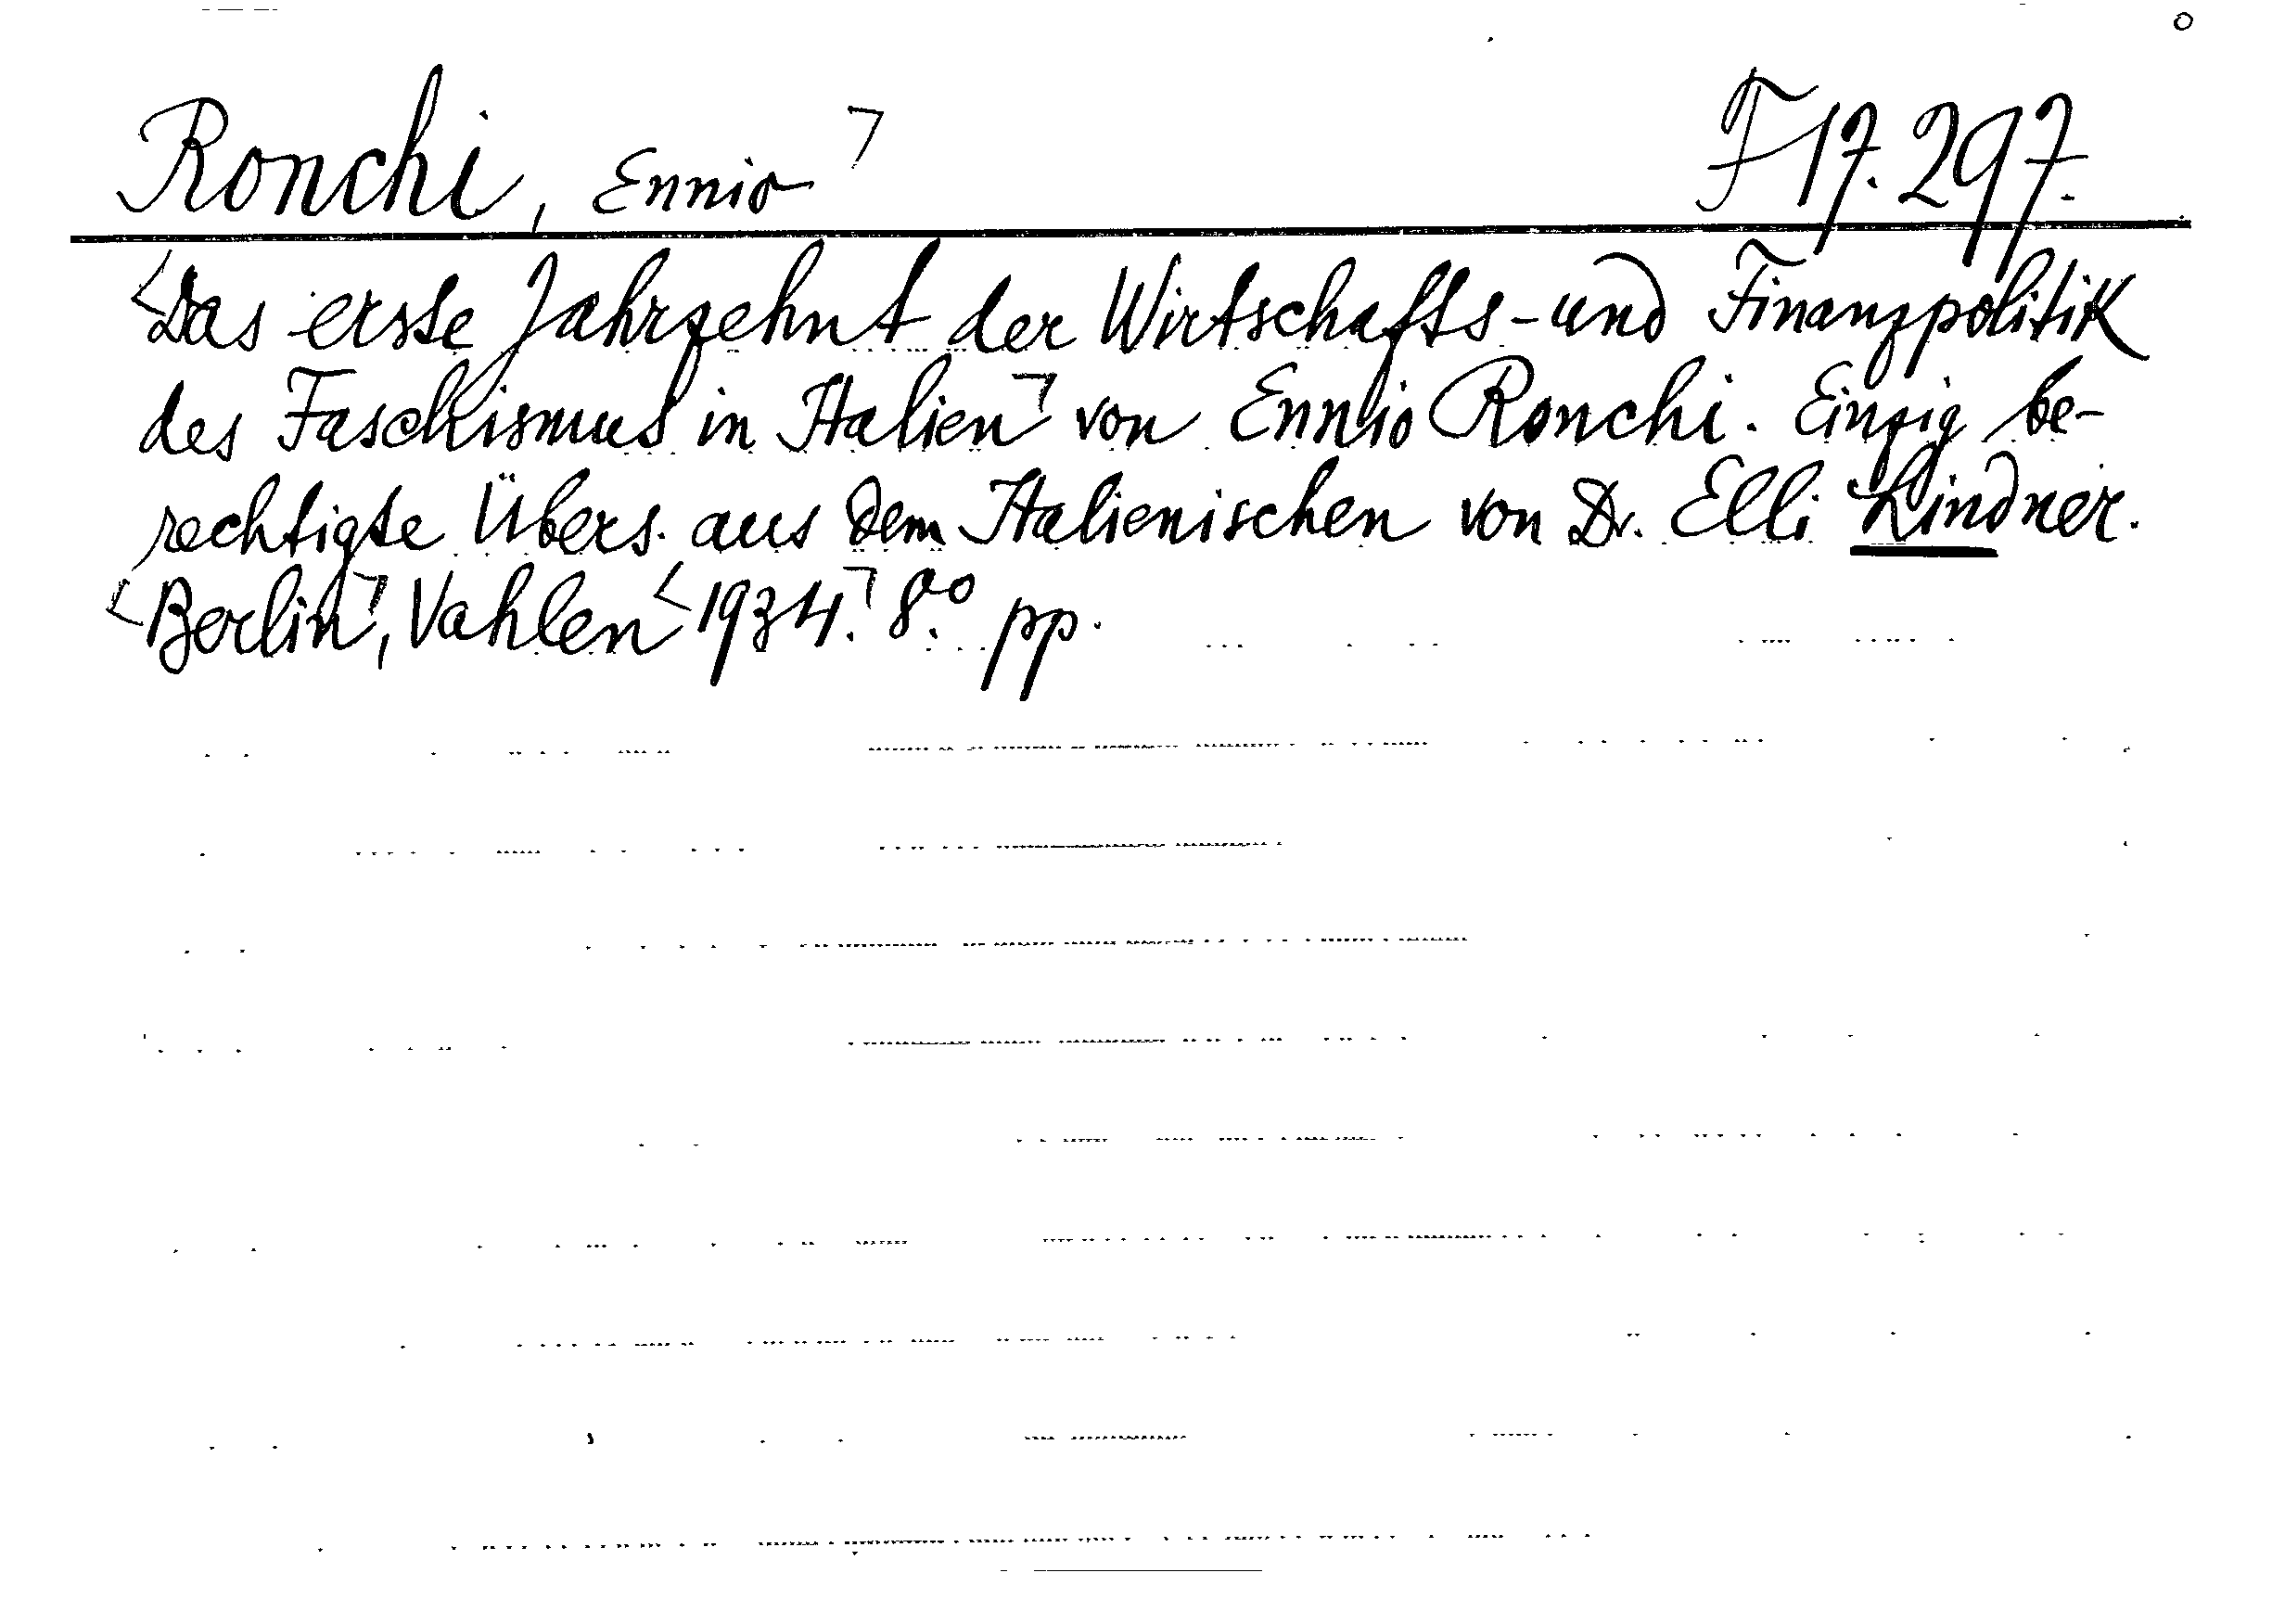 Ronchi, Ennio F 17.297.
Das erste Jahrzehnt der Wirtschafts- und Finanzpolitik
des Faschismus in Italien von Ennio Ronchi. Einzig be-
rechtigte Übers. aus dem Italienischen von Dr. Elli Lindner.
Berlin, Vahlen 1934. 8.° pp.